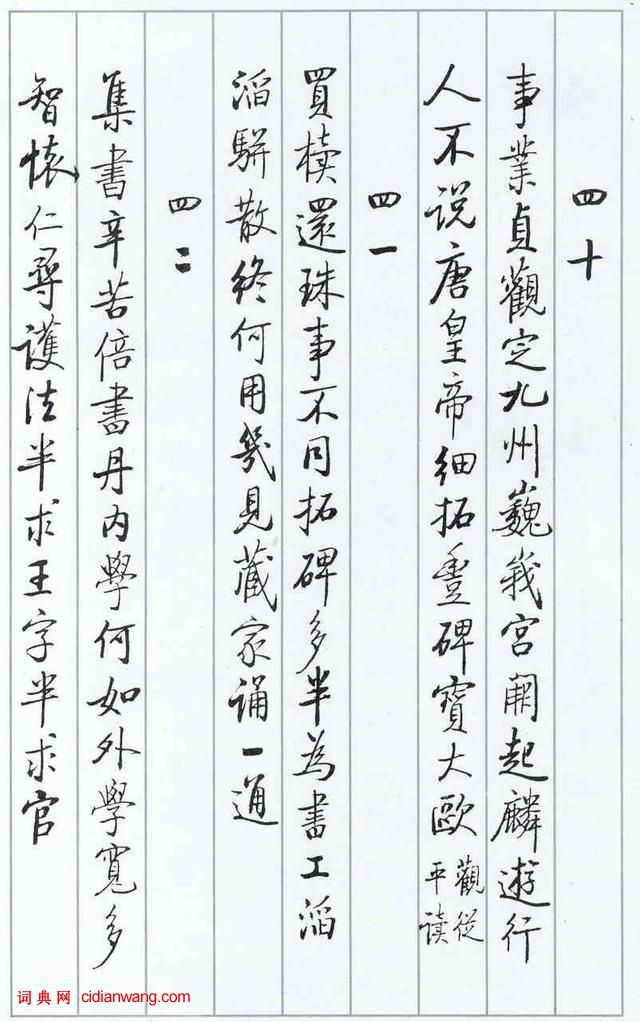 四十
事業貞觀定九州巍峩宮闕起麟遊行
人不说唐皇帝细拓豐碑寶大歐
觀從
平读
四一
買櫝還珠事不同拓碑多半為書工滔
滔駢散終何用幾見藏家誦一通
四二
集書辛苦倍書丹内學何如外學寬多
智懷仁尋護法半求王字半求官
词典网 cidianwang.com